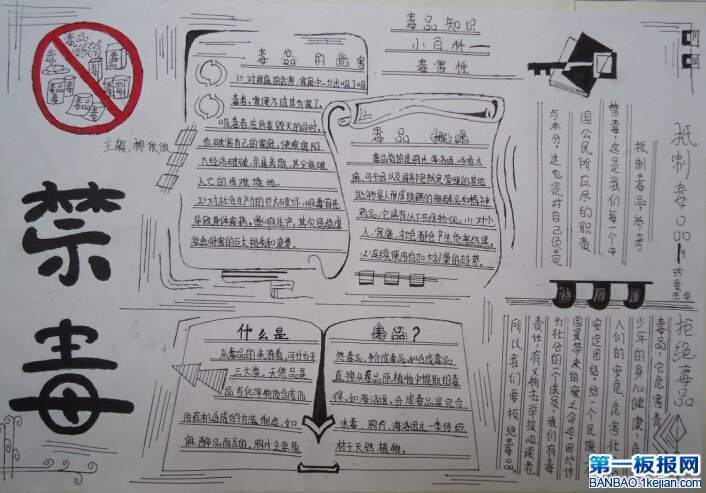 毒品
毒品
毒品
主编:
禁毒
毒品知识
小百科一
毒害性
毒品的危害
1)对家庭的危害:家庭中一旦出现了吸
毒者,家便不成其为家了。
吸毒者在自我毁灭的同时,
也破害自己的家庭,使家庭陷
入经济破破、亲属离散、甚至家破
人亡的困难境地。
2)对社会生产力的巨大破坏:吸毒首先
导致身体疾病,影响生产,其次是造成
社会财富的巨大损失和浪费。
毒品
毒品指的是鸦片、海洛因、
麻、可卡因以及国务院规定管制的其他
能够使人形成瘾癖的麻醉药品和精神
药品,它具有以下共同特征:(1)对个
人、家庭、社会都会产生危害结果。
(2)连续使用有加大剂量的趋势。
抵制毒品!
抵制毒品,参与
禁毒,这是我们每一个中
国公民所应尽的职责
与本分,这也是对自己负责
什么是毒品?
从毒品的来源看,可分为天
三大类。天然品是
用有机合成的方法制造。如
麻醉品而言的。鸦片主要是
然毒品、
直接从毒品原植物中提取的毒
得,如海洛因。合成毒品是完全
冰毒。鸦片、海洛因又一类传统
天然植物。
拒绝毒品
毒品,它危害青
少年的身心健康、
人们的安危,危害社
安定团结,给一个民族、
国家带来
为社会的一个成员,我们有
责任、有义务去举报吸毒者
所以我们要拒绝毒品
第一板报网
BANBAO.1kejian.com